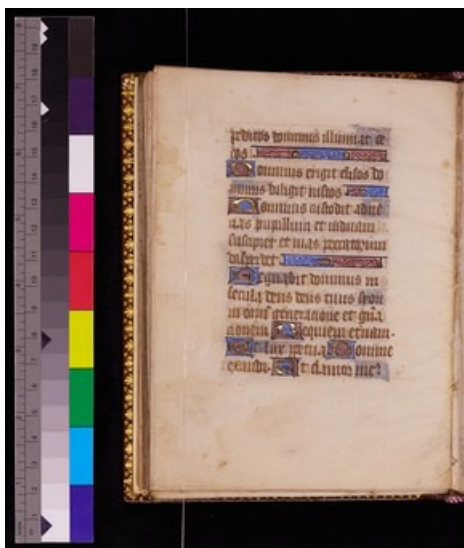 peditos dominus illuminat ce
cos
Dominus erigit elisos do
minus diligit iustos
Dominus custodit adue
nas pupillum et uiduam
suscipiet et uias peccatorum
disperdet
Regnabit dominus in
secula deus tuus syon
in omni generatione et gn̄a
cionem Requiem eternam.
Et lux perpetua Domine
exaudi. Et clamor meꝰ